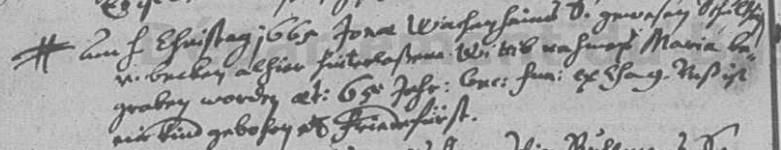 Am H. Christag 1665 Jonae Wachenheims S. gewesen Schultheis
v. becken alhier hinterlaßene Wittib nahmens Maria be-
graben worden aet: 65 Jahr: conc: fun: ex Esa 9. Uns ist
ein Kind geboren etc Friedefürst.